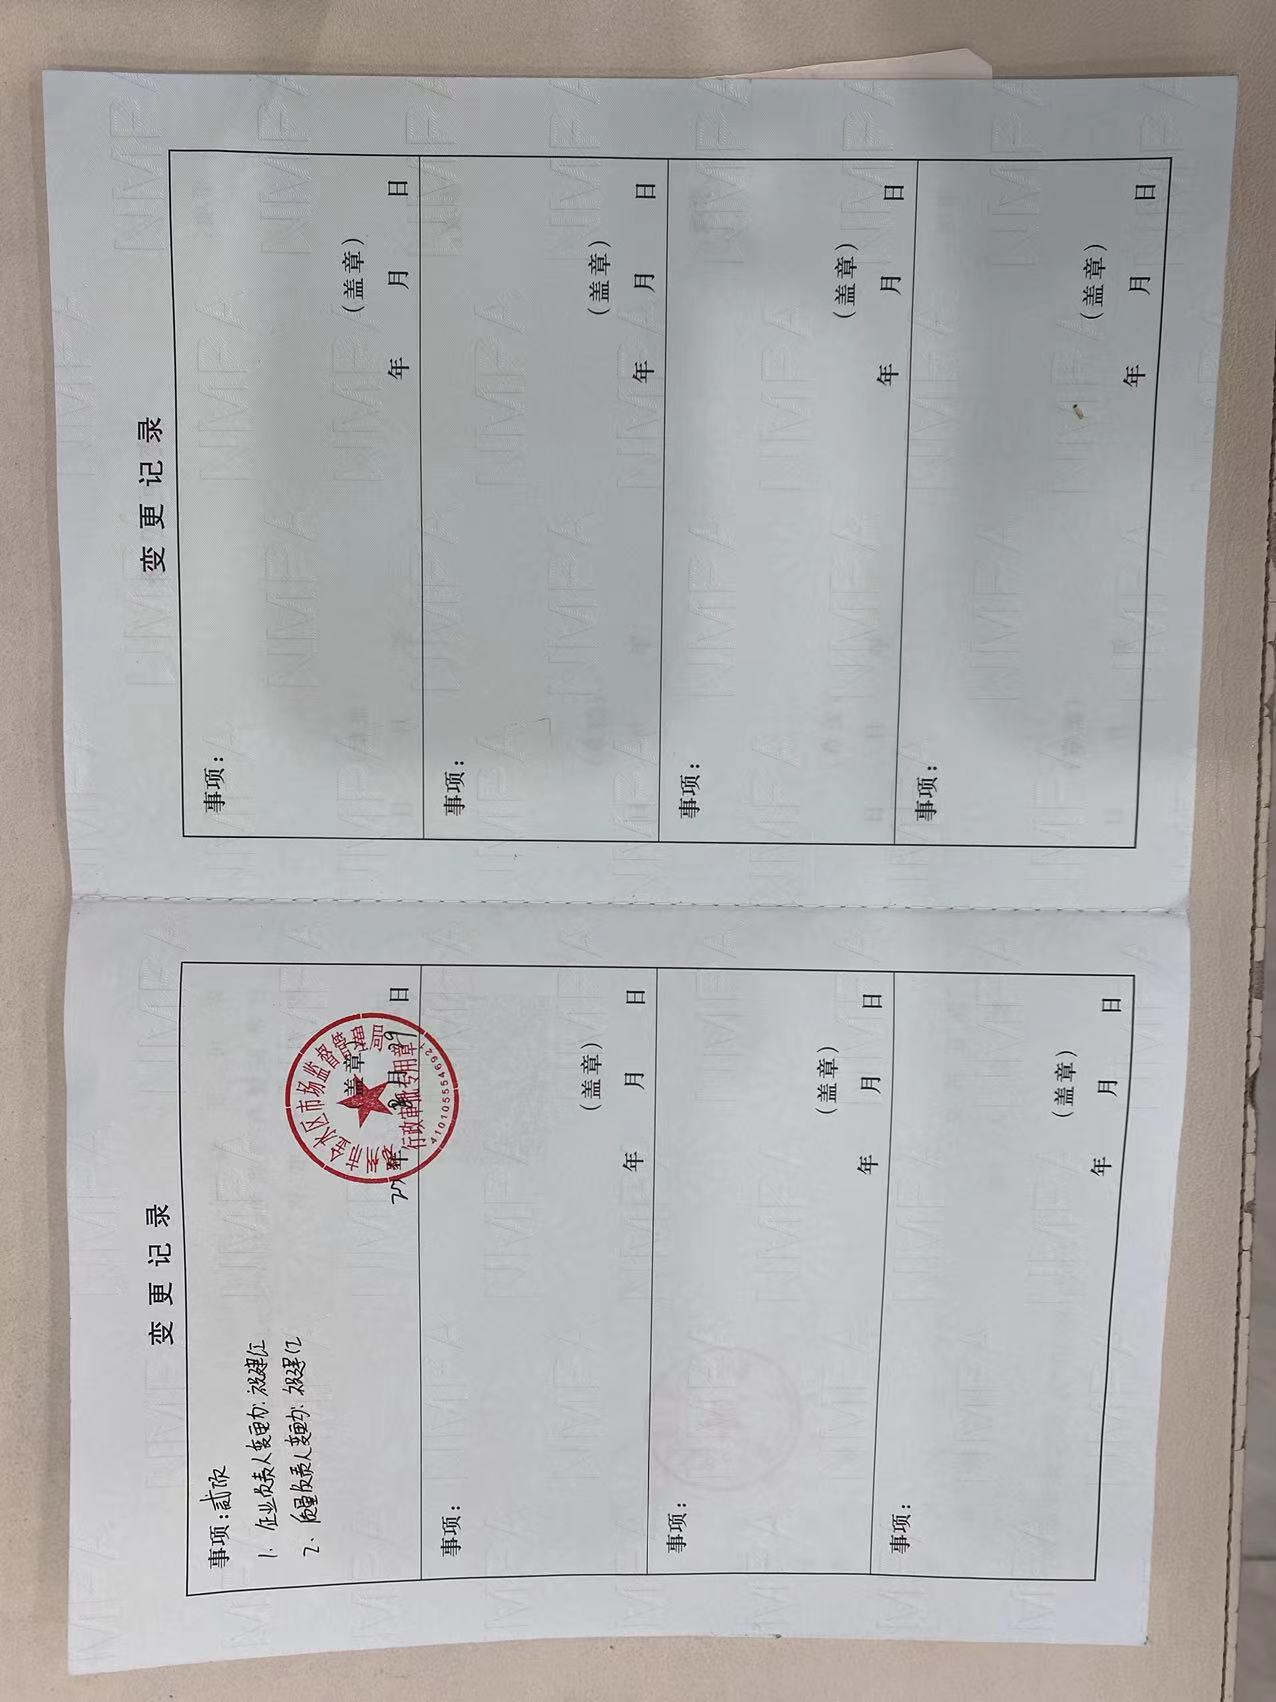 变更记录
事项：贰项
1. 企业负责人变更为：祝建江
2. 质量负责人变更为：祝建江
郑州市金水区市场监督管理局
行政审批专用章
4101055546921
（盖章）
年 月 29 日
事项：
（盖章）
年 月 日
事项：
（盖章）
年 月 日
事项：
（盖章）
年 月 日
变更记录
事项：
（盖章）
年 月 日
事项：
（盖章）
年 月 日
事项：
（盖章）
年 月 日
事项：
（盖章）
年 月 日
NMPA